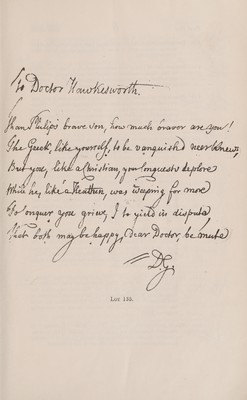 To Doctor Hawkesworth.
Than Philip's brave son, how much braver are you!
The Greek, like yourself, to be vanquish'd ne'er knew,
But you, like a Christian, your conquests deplore
While he, like a Heathen, was weeping for more
To conquer you grieve, I to yield in dispute,
That both may be happy, Dear Doctor, be mute
DG
LOT 135.